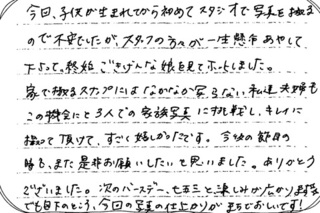 今回、子供が生まれてから初めてスタジオで写真を撮る
ので不安でしたが、スタッフの方々が一生懸命あやして
下さって、終始ごきげんな娘を見てホットしました。
家で撮るスナップにはなかなか写らない私達夫婦も
この機会にと3人での家族写真に挑戦し、キレイに
撮って頂けて、すごく嬉しかったです。今後の節目の
時も、また是非お願いしたいと思いました。ありがとう
ございました。次のバースデー、七五三と楽しみがたかります。
でも目下のところ、今回の写真の仕上がりがまちどおしいです!